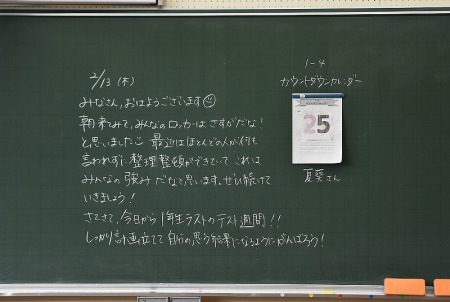 2/13 (木)
みなさん、おはようございます
朝来てみて、みんなのロッカーは さすがだな!
と思いました 最近はほとんどの人が何も
言われずに整理整頓ができていて これは
みんなの強みだなと思います。ぜひ続けて
いきましょう!
さてさて、今日から1年生ラストのテスト週間!!
しっかり計画立てて 自分の思う結果になるようにがんばろう!
1-4
カウントダウンカレンダー
25
夏葵さん